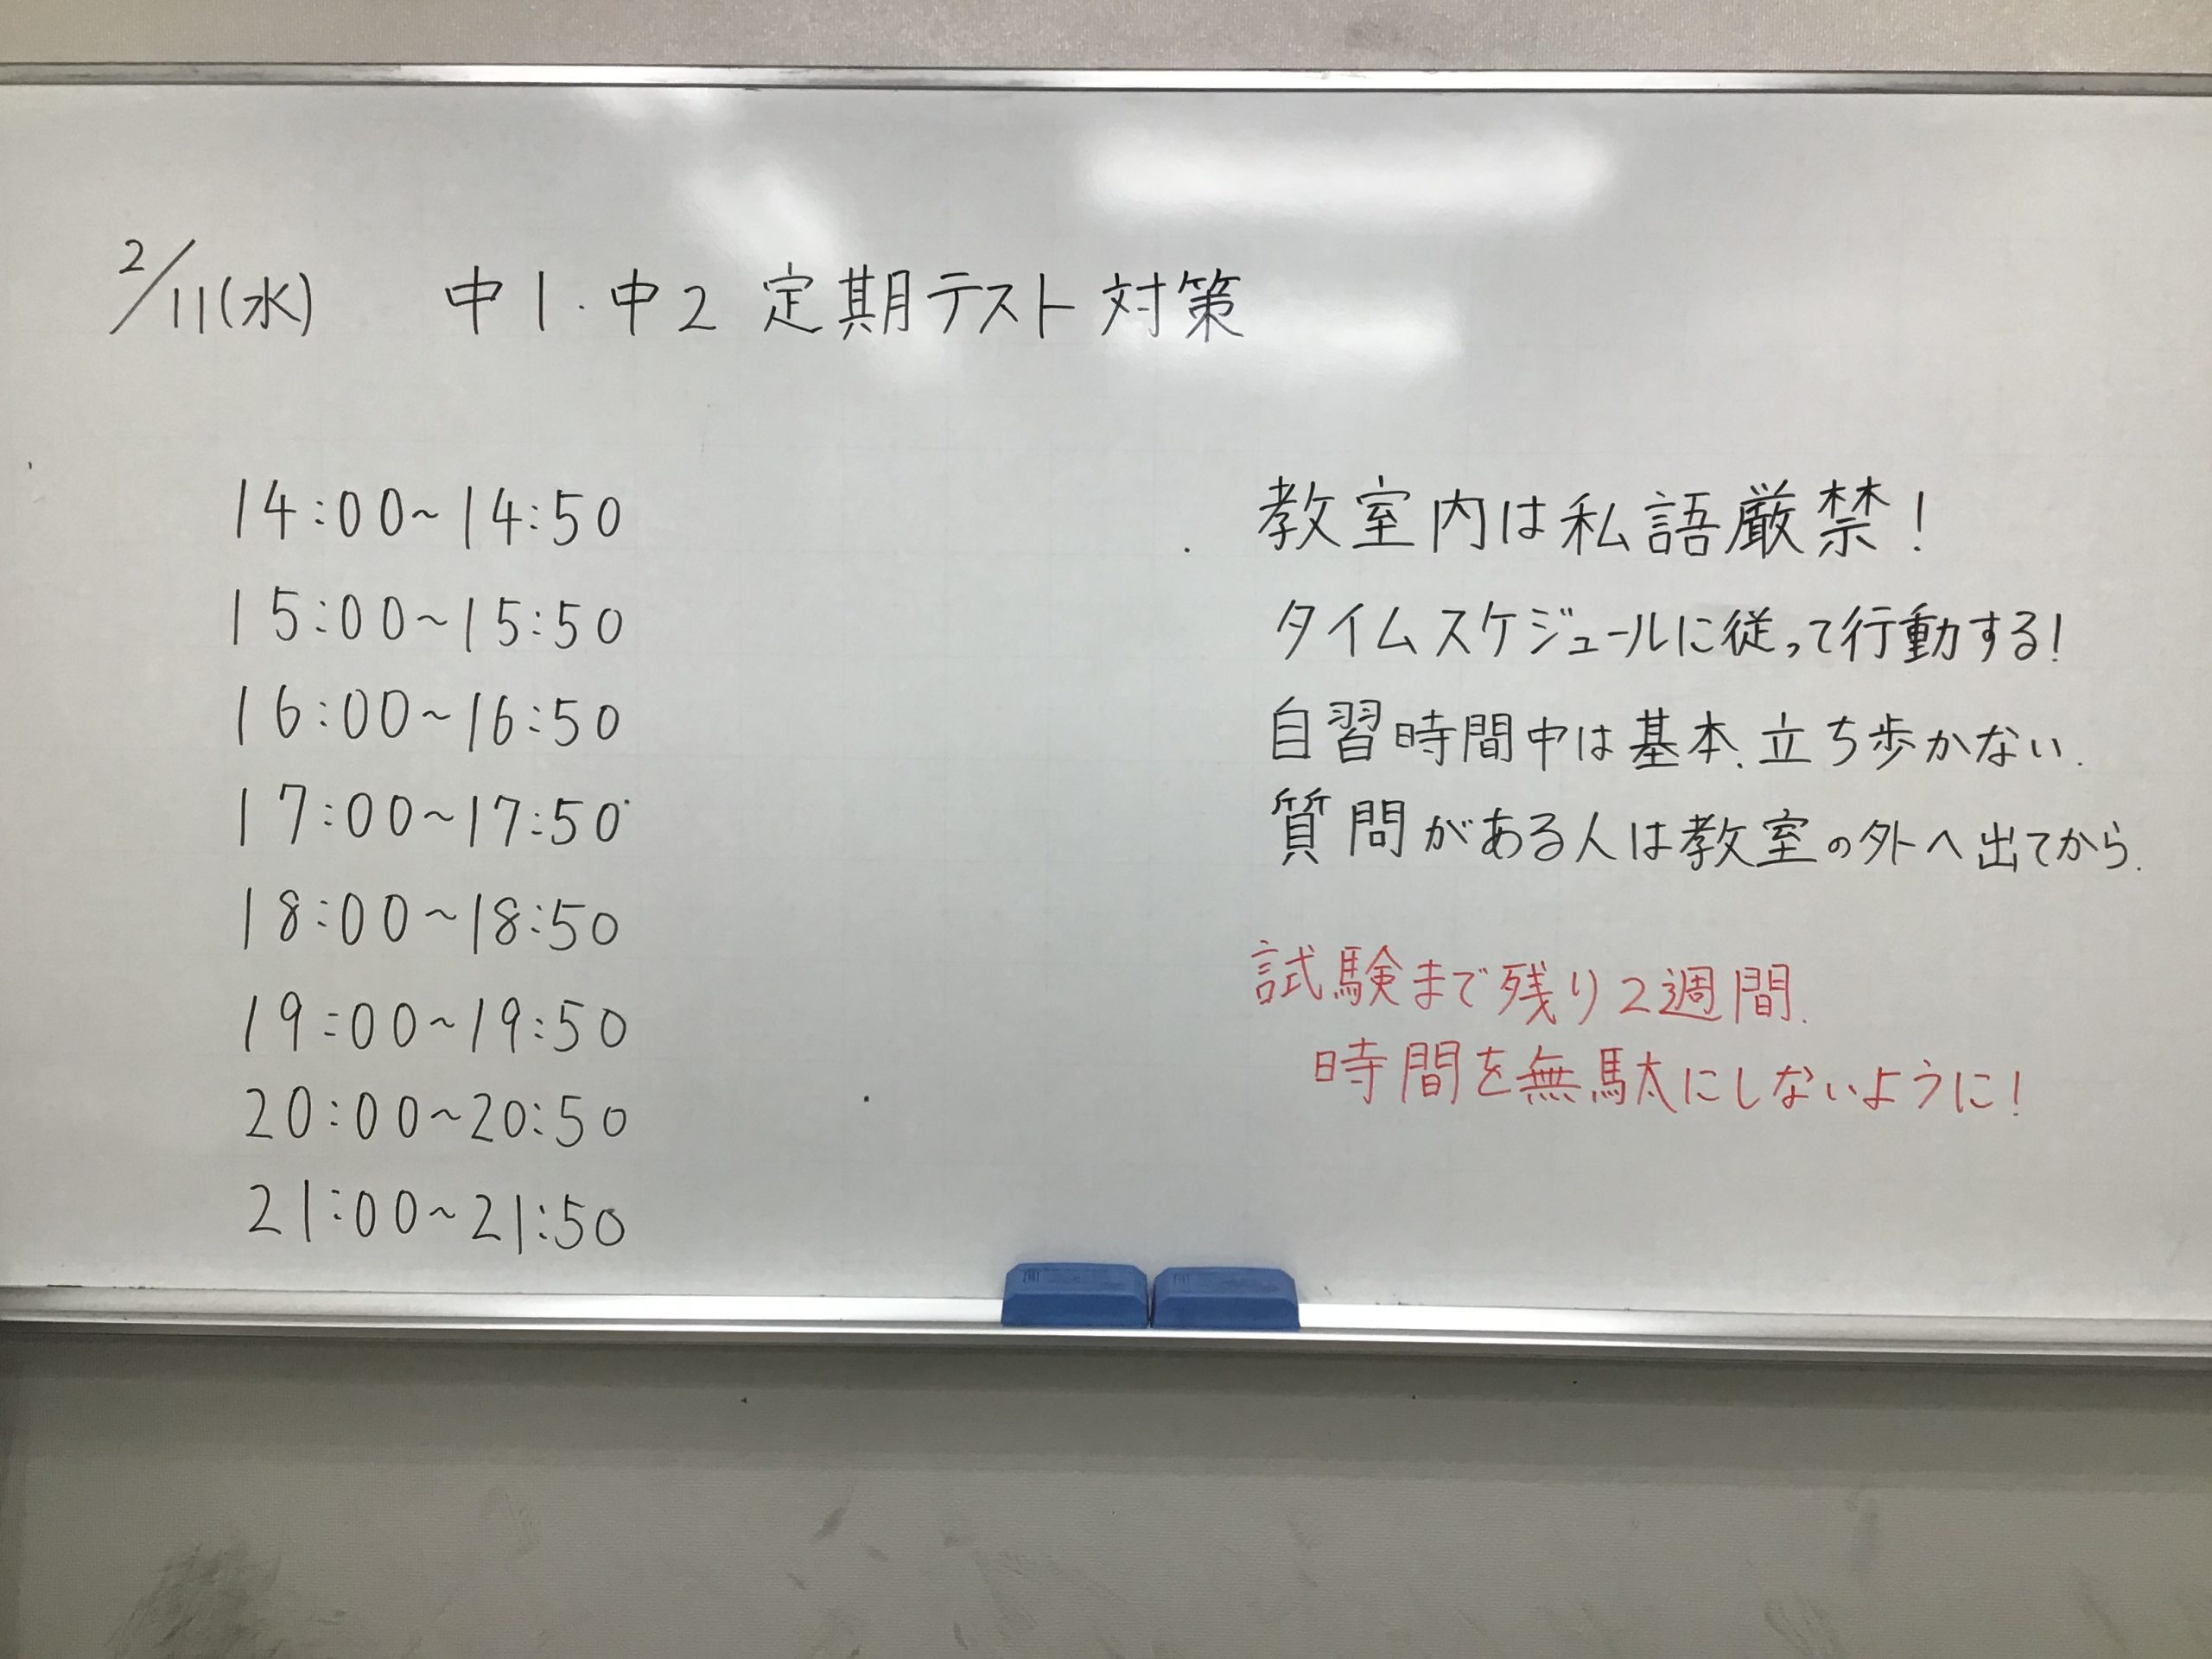 2/11(水) 中1・中2 定期テスト対策
14:00~14:50
15:00~15:50
16:00~16:50
17:00~17:50
18:00~18:50
19:00~19:50
20:00~20:50
21:00~21:50
教室内は私語厳禁!
タイムスケジュールに従って行動する!
自習時間中は基本、立ち歩かない.
質問がある人は教室の外へ出てから.
試験まで残り2週間.
時間を無駄にしないように!